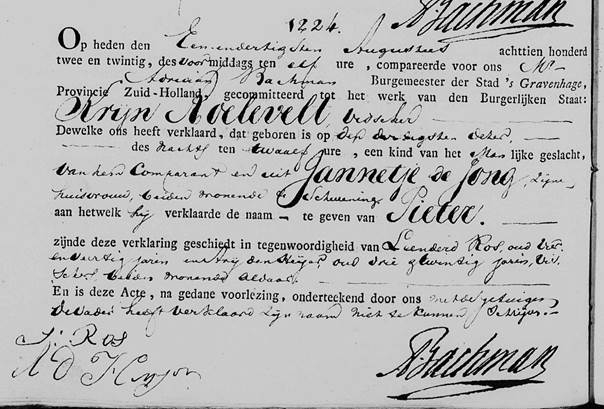 1224. A Bachman
Op heden den Eenendertigsten Augustus achttien honderd
twee en twintig, des voor middags ten elf ure, compareerde voor ons Mr
Adriaan Bachman Burgemeester der Stad 's Gravenhage,
Provincie Zuid-Holland, gecommitteerd tot het werk van den Burgerlijken Staat:
Krijn Roelevelt visscher
Dewelke ons heeft verklaard, dat geboren is op den dertigsten dezer,
des Nachts ten twaalf ure, een kind van het Man lijke geslacht,
van hem Comparant en uit Jannetje de Jong, zijne
huisvrouw, beiden wonende te Schevening
aan hetwelk hij verklaarde de naam te geven van Pieter.
zijnde deze verklaring geschiedt in tegenwoordigheid van Leendert Ros, oud
jaren en den Heijer oud drie twintig jaren,
beiden wonende aldaar
En is deze Acte, na gedane voorlezing, onderteekend door ons met de getuigen
De vader heeft verklaard zijn naam niet te kunnen schrijven.
L: Ros
A D Heijer A Bachman